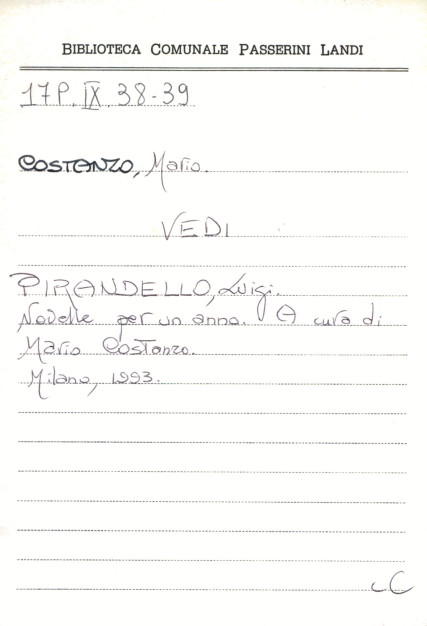 BIBLIOTECA COMUNALE PASSERINI LANDI
17P. IX. 38-39
COSTANZO, Mario.
VEDI
PIRANDELLO, Luigi.
Novelle per un anno. A cura di
Mario Costanzo.
Milano, 1993.